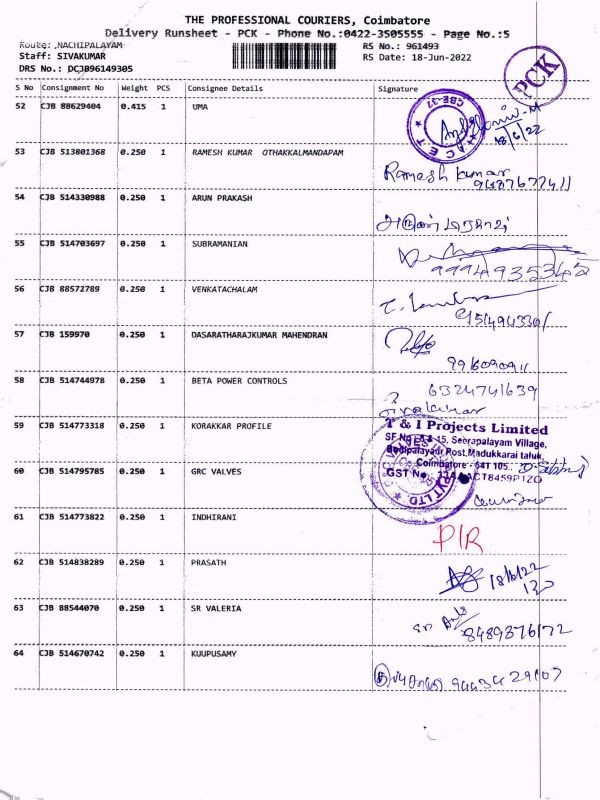 THE PROFESSIONAL COURIERS, Coimbatore
Delivery Runsheet - PCK - Phone No.:0422-3505555 - Page No.:5
Route: NACHIPALAYAM RS No.: 961493
Staff: SIVAKUMAR RS Date: 18-Jun-2022
DRS No.: DCJB96149305
PCK
S No Consignment No Weight PCS Consignee Details Signature
52 CJB 88629404 0.415 1 UMA
CBE-32
18/6/22
53 CJB 513801368 0.250 1 RAMESH KUMAR OTHAKKALMANDAPAM
Ramesh kumar
54 CJB 514330988 0.250 1 ARUN PRAKASH
55 CJB 514703697 0.250 1 SUBRAMANIAN
9994935345
56 CJB 88572789 0.250 1 VENKATACHALAM
57 CJB 159970 0.250 1 DASARATHARAJKUMAR MAHENDRAN
58 CJB 514744978 0.250 1 BETA POWER CONTROLS
6324741639
Sivakumar
59 CJB 514773318 0.250 1 KORAKKAR PROFILE
T & I Projects Limited
SF No 15, Seerapalayam Village,
Post, Madukkarai taluk,
Coimbatore - 641 105.
60 CJB 514795785 0.250 1 GRC VALVES
GST No
61 CJB 514773822 0.250 1 INDHIRANI
P/R
62 CJB 514838289 0.250 1 PRASATH
18/6/22
63 CJB 88544070 0.250 1 SR VALERIA
8489376172
64 CJB 514670742 0.250 1 KUUPUSAMY